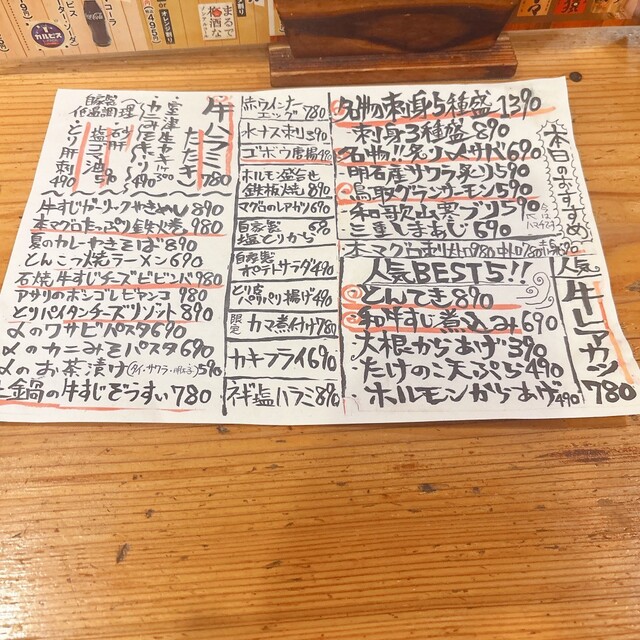 本日のおすすめ
名物!刺身5種盛 1390
刺身3種盛 890
名物!!炙り〆サバ 690
明石産サワラ炙り 590
鳥取グランサーモン 590
和歌山寒ブリ 590
三重しまあじ 690
本マグロ刺り
人気BEST5!!
とんてき 890
和牛すじ煮込み 690
大根からあげ 390
たけのこ天ぷら 490
ホルモンからあげ 490
人気
牛レアカツ
780
赤ウインナー
エッグ 780
水ナス刺し 590
ゴボウ唐揚
ホルモン盛合せ
鉄板焼 890
マグロのレアカツ 690
自家製
塩とりから 690
自家製
ポテトサラダ 490
とり皮
パリパリ揚げ 490
限定 カマ煮付け 780
カキフライ 690
ネギ塩ハラミ 890
牛ハラミ
たたき
780
自家製
低温調理
とり肝刺 490
牛すじガーリックやきめし 890
本マグロたっぷり鉄火巻 980
夏のカレーやきそば 890
とんこつ焼ラーメン 690
石焼牛すじチーズビビンバ 980
アサリのボンゴレビアンコ 980
とりパイタンチーズリゾット 890
〆のワサビパスタ 690
〆のカニみそパスタ 690
〆のお茶漬け 590
土鍋の牛すじぞうすい 780
まるで
梅酒な
ノンアルコール
カルピス
コーラ